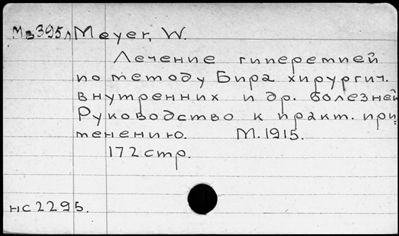 Мз395л Meyer, W.
Лечение гиперемией
по методу Бира хирургич.
внутренних и др. болезней
Руководство к практ. при-
менению. М. 1915.
172 стр.
нс2295.